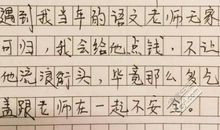 遇到我当年的语文老师无家
可归，我会给他点钱，不让
他流浪街头，毕竟那么多包
盖跟老师在一起不安全。